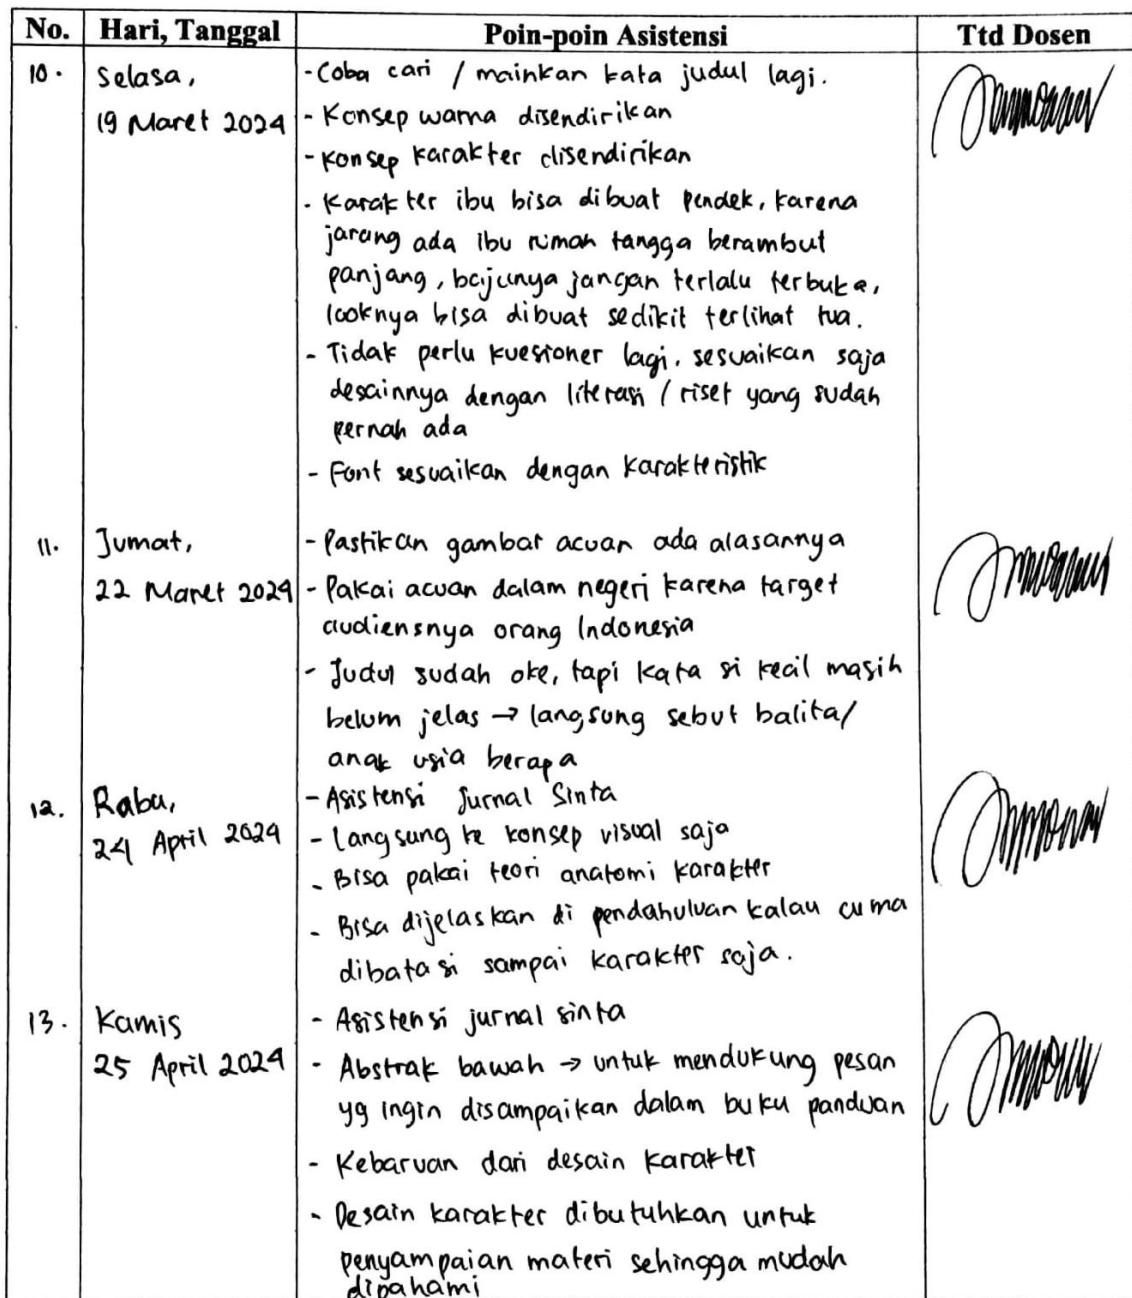 No. Hari, Tanggal Poin-poin Asistensi Ttd Dosen
10. Selasa, - Coba cari / mainkan kata judul lagi.
19 Maret 2024 - Konsep warna disendirikan
- Konsep karakter disendirikan
- Karakter ibu bisa dibuat pendek, karena
jarang ada ibu rumah tangga berambut
panjang, bajunya jangan terlalu terbuka,
looknya bisa dibuat sedikit terlihat tua.
- Tidak perlu kuesioner lagi. sesuaikan saja
desainnya dengan literasi / riset yang sudah
pernah ada
- Font sesuaikan dengan karakteristik
11. Jumat, - Pastikan gambar acuan ada alasannya
22 Maret 2024 - Pakai acuan dalam negeri karena target
audiensnya orang Indonesia
- Judul sudah oke, tapi kata si kecil masih
belum jelas → langsung sebut balita/
anak usia berapa
12. Rabu, - Asistensi Jurnal Sinta
24 April 2024 - Langsung ke konsep visual saja
- Bisa pakai teori anatomi karakter
- Bisa dijelaskan di pendahuluan kalau cuma
dibatasi sampai karakter saja.
13. Kamis - Asistensi jurnal sinta
25 April 2024 - Abstrak bawah → untuk mendukung pesan
yg ingin disampaikan dalam buku panduan
- Kebaruan dari desain karakter
- Desain karakter dibutuhkan untuk
penyampaian materi sehingga mudah
dipahami